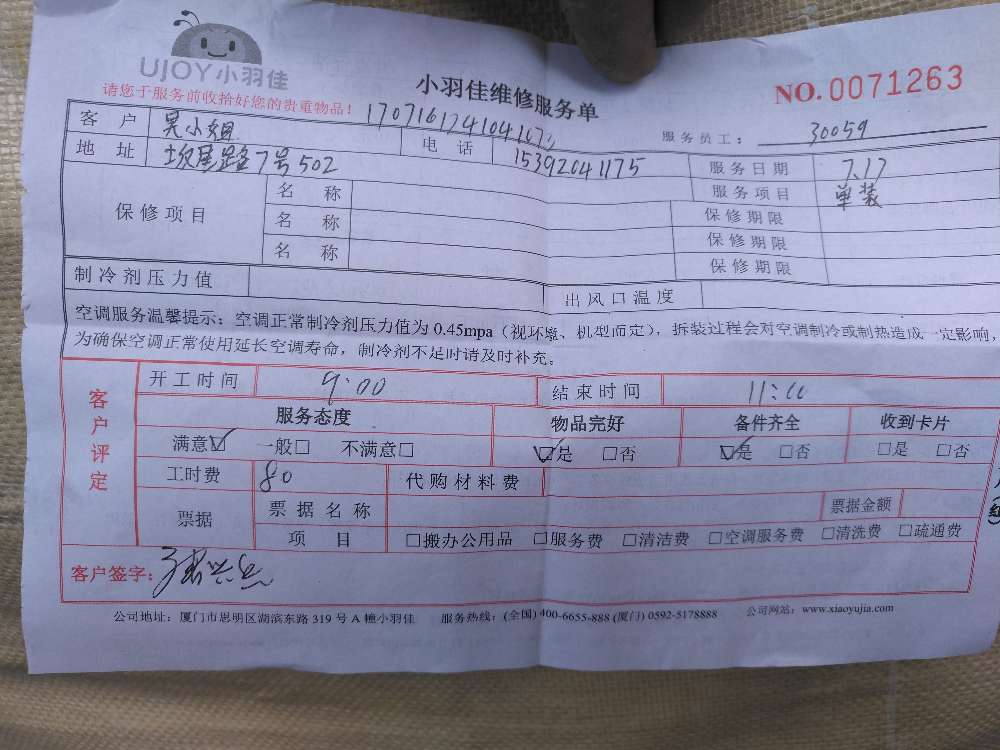 UJOY小羽佳
请您于服务前收拾好您的贵重物品！
小羽佳维修服务单
NO.0071263
服务员工： 30059
客户 吴小姐 电话 15392041175
地址 坂尾路7号502
服务日期 7.17
服务项目 单装
保修项目
名称 保修期限
名称 保修期限
名称 保修期限
制冷剂压力值 出风口温度
空调服务温馨提示：空调正常制冷剂压力值为 0.45mpa（视环境、机型而定），拆装过程会对空调制冷或制热造成一定影响，
为确保空调正常使用延长空调寿命，制冷剂不足时请及时补充。
客户评定
开工时间 9:00 结束时间 11:00
服务态度 物品完好 备件齐全 收到卡片
满意☑ 一般□ 不满意□ ☑是 □否 ☑是 □否 □是 □否
工时费 80 代购材料费
票据 票据名称 票据金额
项目 □搬办公用品 □服务费 □清洁费 □空调服务费 □清洗费 □疏通费
客户签字：
公司地址：厦门市思明区湖滨东路 319 号 A 幢小羽佳 服务热线：(全国) 400-6655-888 (厦门) 0592-5178888 公司网站：www.xiaoyujia.com